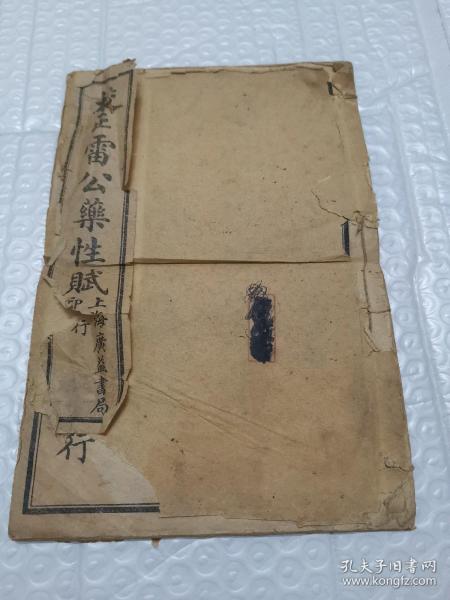 雷公藥性賦
上海廣益書局
印行
行
孔夫子旧书网
www.kongfz.com